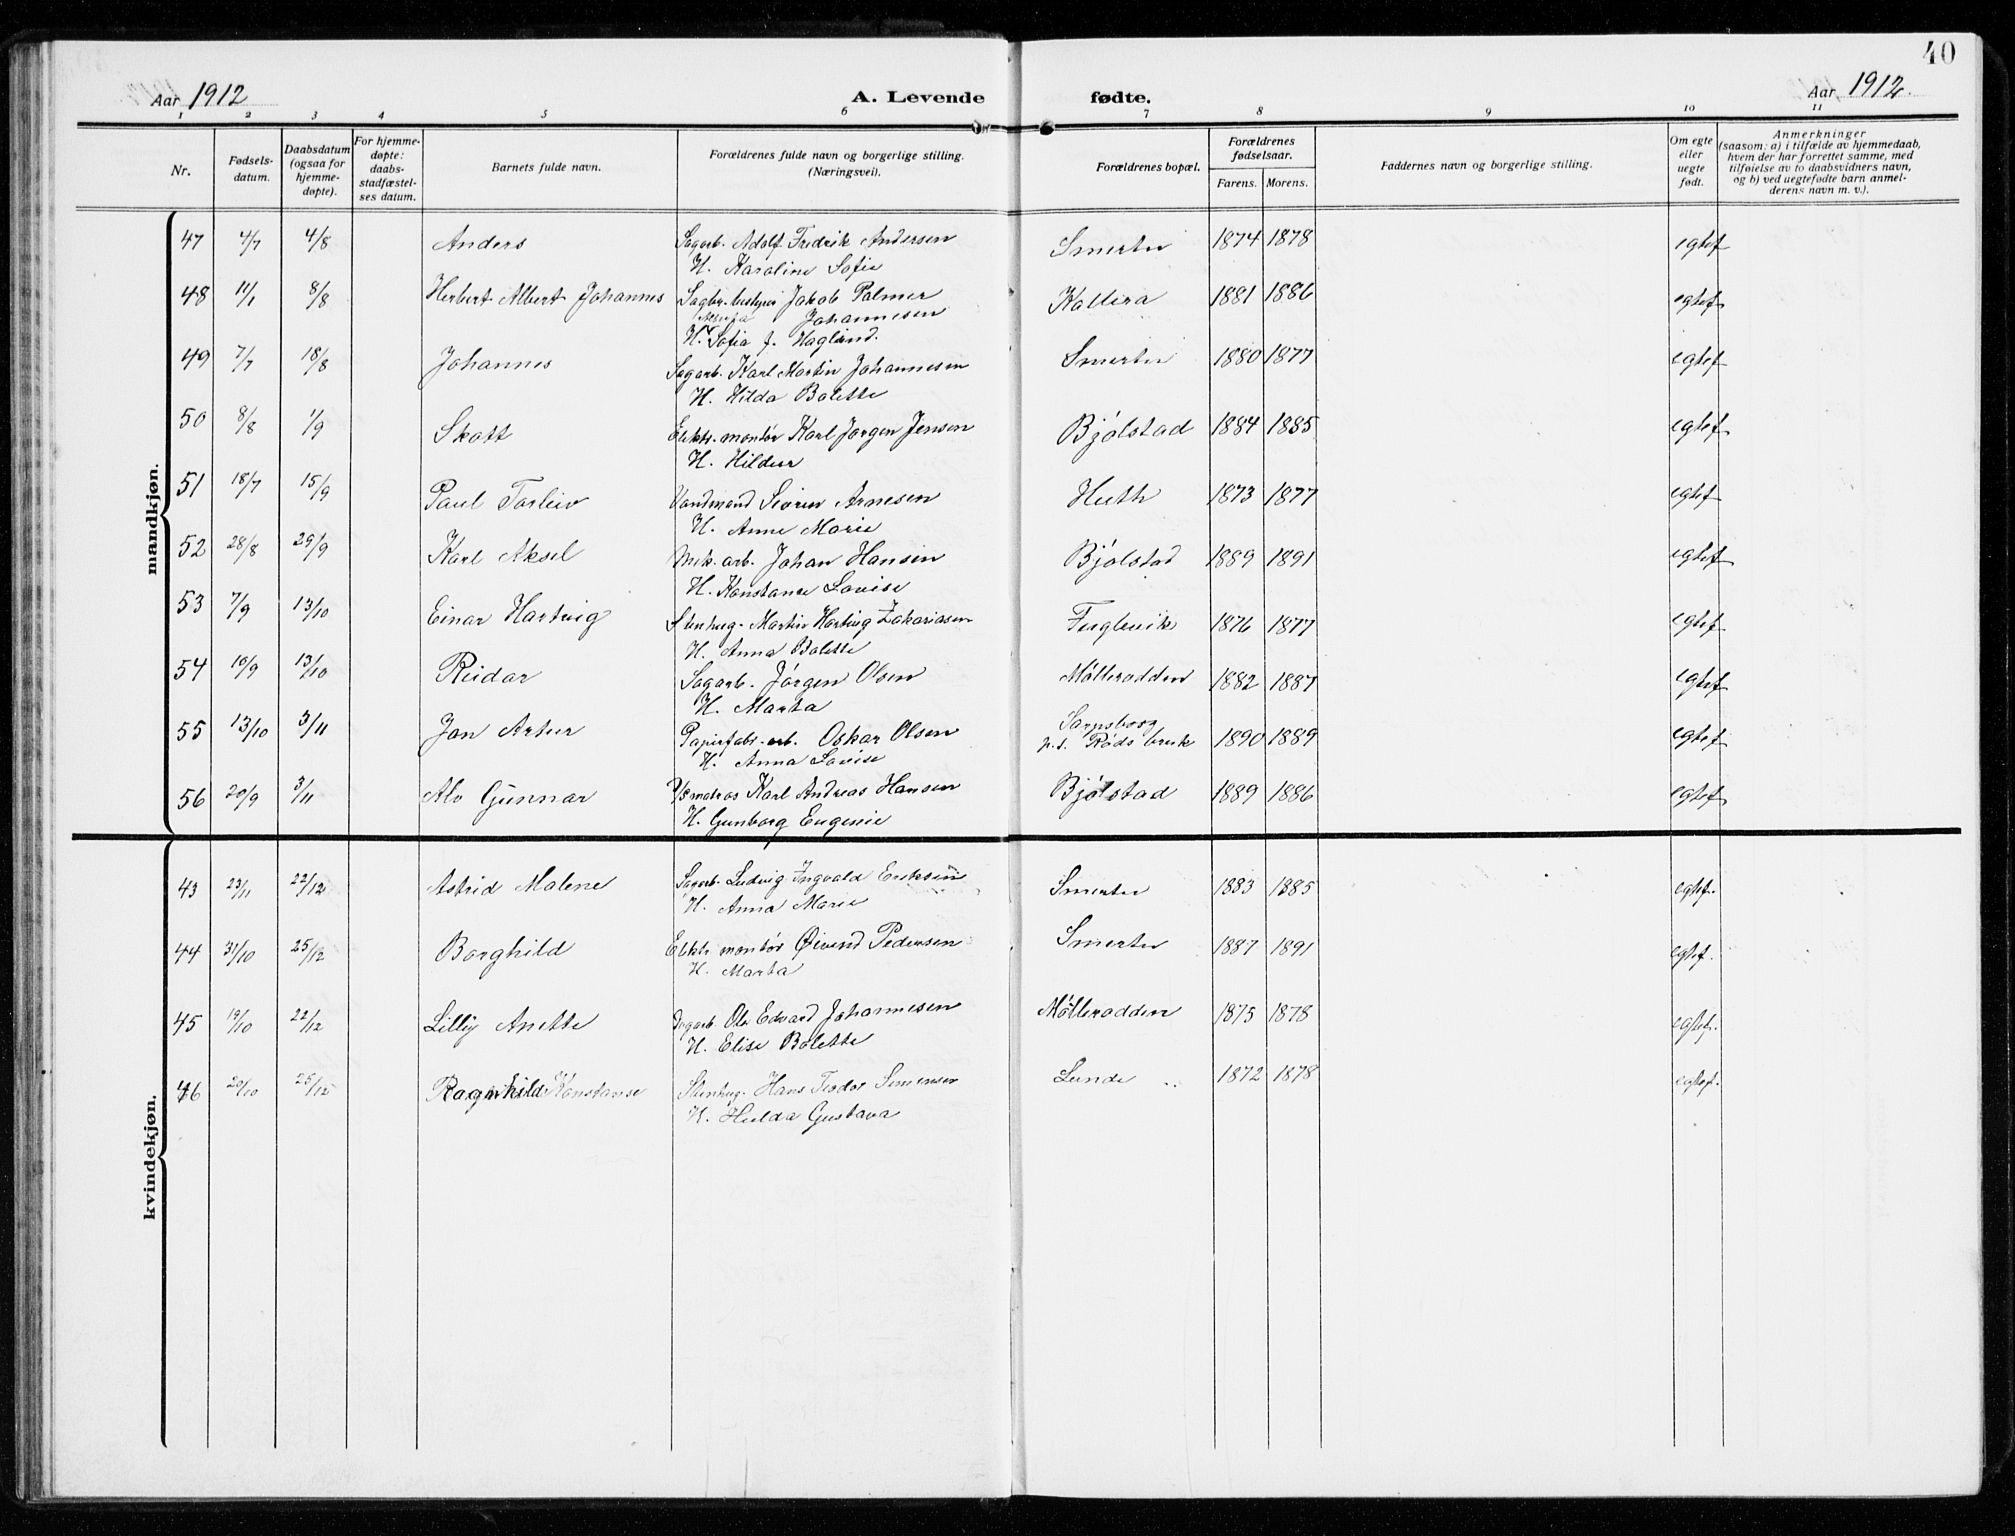 40
Aar 1912
A. Levende fødte.
Aar 1912.
1 2 3 4 5 6 7 8 9 10 11
Nr.
Fødsels-
datum.
Daabsdatum
(ogsaa for
hjemme-
døpte).
For hjemme-
døpte:
daabs-
stadfæstel-
ses datum.
Barnets fulde navn.
Forældrenes fulde navn og borgerlige stilling.
(Næringsvei).
Forældrenes bopæl.
Forældrenes
fødselsaar.
Farens. Morens.
Faddernes navn og borgerlige stilling.
Om egte
eller
uegte
født.
Anmerkninger
(saasom: a) i tilfælde av hjemmedaab,
hvem der har forrettet samme, med
tilføielse av to daabsvidners navn,
og b) ved uegtefødte barn anmel-
derens navn m. v.).
mandkjøn.
47 4/7 4/8 Anders Sagarb. Adolf Fredrik Andersen Smertu 1874 1878 egtef
H. Karoline Sofie
48 11/1 8/8 Herbert Albert Johannes Sagbr. bestyrer Jakob Palmer Kallera 1881 1886 egtef
Johannesen
H. Sofia f. Haglund.
49 7/7 18/8 Johannes Sagarb. Karl Martin Johannesen Smertu 1880 1877 egtef
H. Hilda Bolette
50 8/8 1/9 Skott Elektr. montør Karl Jørgen Jensen Bjølstad 1884 1885 egtef
H. Hildur
51 18/7 15/9 Paul Torleiv Vandmand Severin Arnesen Huth 1873 1877 egtef
H. Anne Marie
52 28/8 29/9 Karl Aksel Mek. arb. Johan Hansen Bjølstad 1889 1891 egtef
H. Konstanse Lovise
53 7/9 13/10 Einar Hartvig Stenhug. Martin Hartvig Zakariasen Fuglevik 1876 1877 egtef
H. Anna Bolette
54 10/9 13/10 Reidar Sagarb. Jørgen Olsen Mølleradden 1882 1887 egtef
H. Marta
55 13/10 3/11 Jan Artur Papirfabr. arb. Oskar Olsen Sarpsborg 1890 1889 egtef
p.t. Røds bruk
H. Anna Lovise
56 20/9 3/11 Alv Gunnar matros Karl Andreas Hansen Bjølstad 1889 1886 egtef
H. Gunborg Eugenie
kvindekjøn.
43 23/11 22/12 Astrid Malene Sagarb. Ludvig Ingvald Eriksen Smertu 1883 1885 egtef.
H. Anna Marie
44 31/10 25/12 Borghild Elektr. montør Øivind Pedersen Smertu 1887 1891 egtef.
H. Marta
45 19/10 22/12 Lilly Anette Sagarb. Ole Edvard Johannesen Mølleradden 1875 1878 egtef.
H. Elise Bolette
46 20/10 25/12 Ragnhild Konstanse Stenhug. Hans Teodor Simensen Lunde 1872 1878 egtef.
H. Hulda Gustava